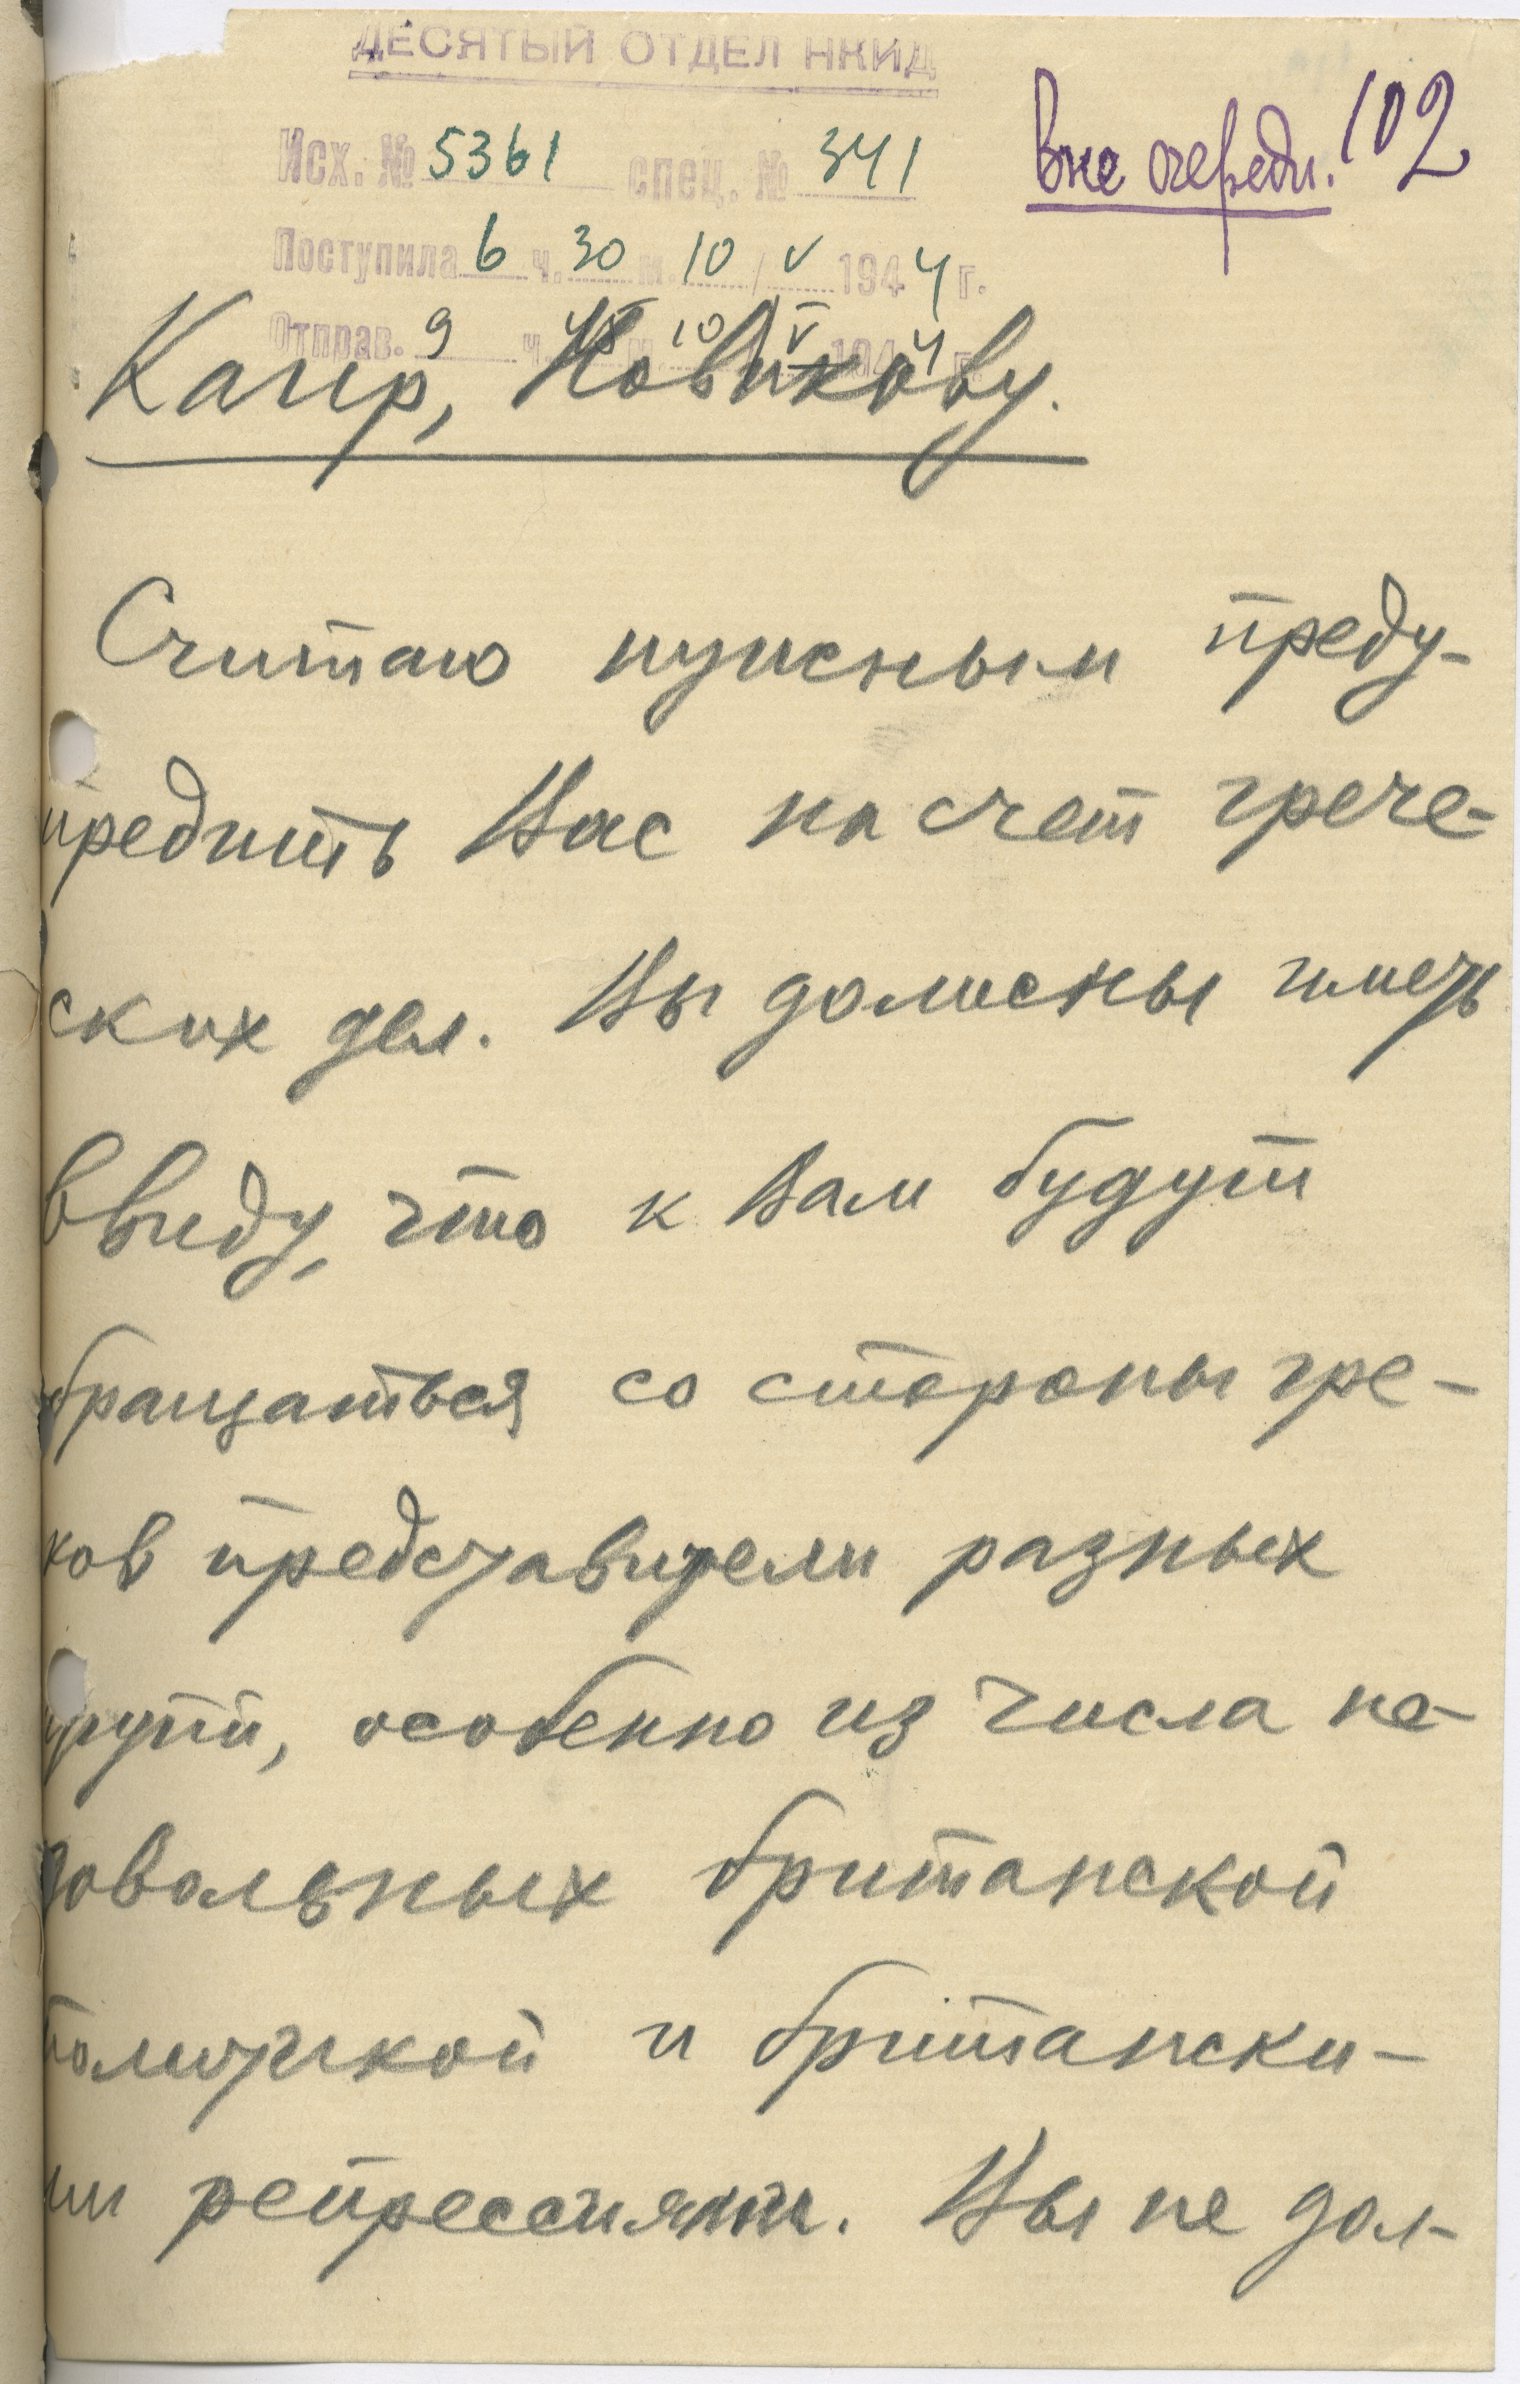 ДЕСЯТЫЙ ОТДЕЛ НКИД
Исх. № 5361 спец. № 341
вне очереди. 102
Поступила 6 ч. 30 м. 10 / V 1944 г.
Отправ. 9 ч. м. 10 / V 1944 г.
Каир, Новикову.
Считаю нужным преду-
предить Вас насчет грече-
ских дел. Вы должны иметь
ввиду, что к Вам будут
обращаться со стороны гре-
ков представители разных
групп, особенно из числа не-
довольных британской
политикой и британски-
ми репрессиями. Вы не дол-